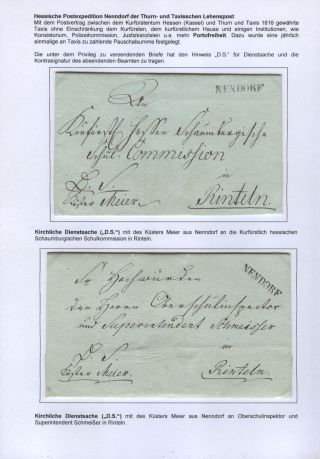 Hessische Postexpedition Nenndorf der Thurn- und Taxisschen Lehenspost
Mit dem Postvertrag zwischen dem Kurfürstentum Hessen (Kassel) und Thurn und Taxis 1816 gewährte
Taxis ohne Einschränkung dem Kurfürsten, dem kurfürstlichem Hause und einigen Institutionen, wie
Konsistorium, Polizeikommission, Justizkanzleien u.a. mehr Portofreiheit. Dazu wurde eine jährlich
einmalige an Taxis zu zahlende Pauschalsumme festgelegt.
Die unter dem Privileg zu versendenden Briefe hat den Hinweis „D.S.“ für Dienstsache und die
Kontrasignatur des absendenden Beamten zu tragen.
NENDORF
An
Kurfürstl Hessen Schaumburgische
Schul-Commission
in
D. S.
Küster Meier.
Rinteln.
Kirchliche Dienstsache („D.S.“) mit des Küsters Meier aus Nenndorf an die Kurfürstlich hessischen
Schaumburgischen Schulkommission in Rinteln.
NENDORF
Sr Hochwürden
den Herrn Oberschulinspector
und Superintendent Schmeisser
in
D. S.
Küster Meier.
Rinteln.
Kirchliche Dienstsache („D.S.“) mit des Küsters Meier aus Nenndorf an Oberschulinspektor und
Superintendent Schmeißer in Rinteln.